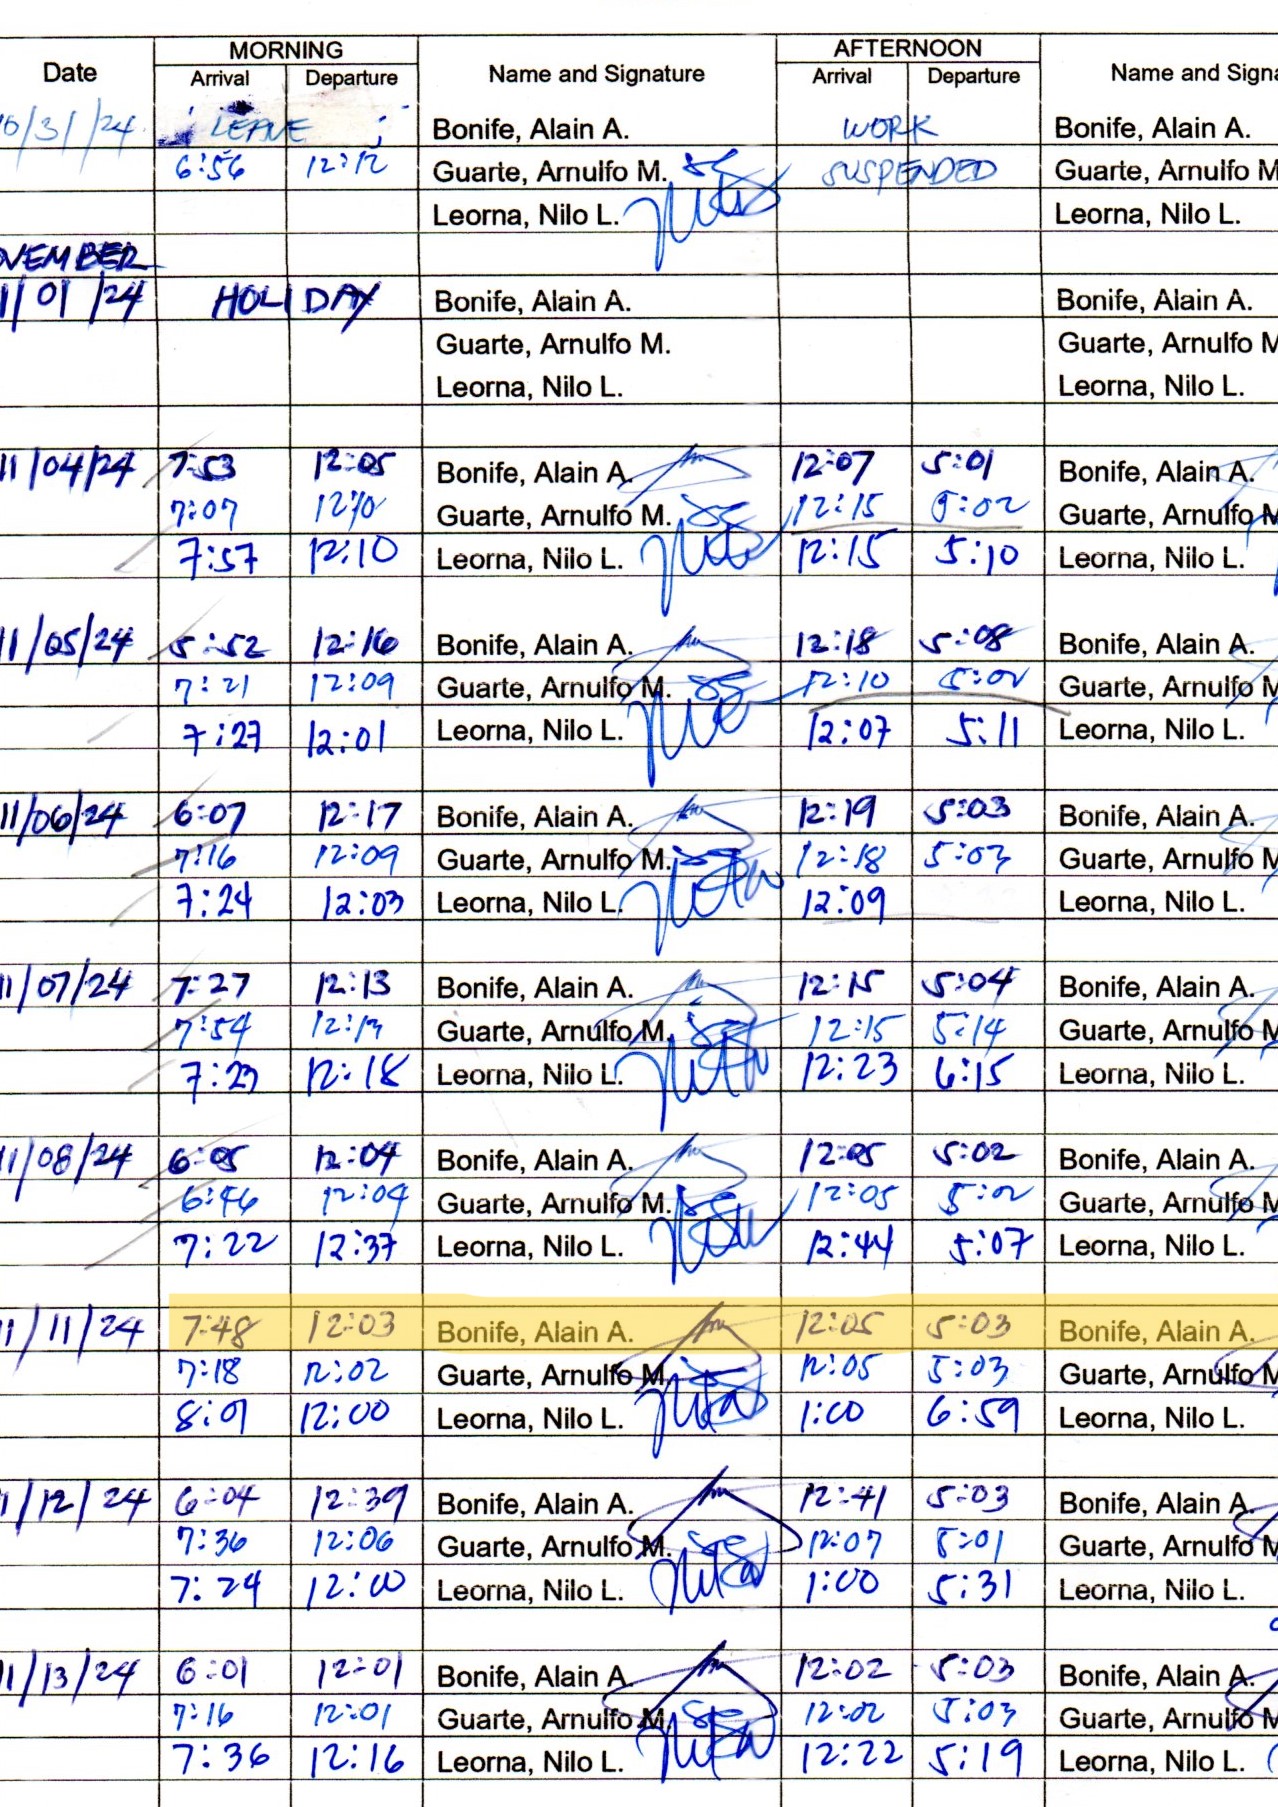 MORNING AFTERNOON
Date Arrival Departure Name and Signature Arrival Departure Name and Signa
10/31/24 LEAVE Bonife, Alain A. WORK Bonife, Alain A.
6:56 12:12 Guarte, Arnulfo M. SUSPENDED Guarte, Arnulfo M
Leorna, Nilo L. Leorna, Nilo L.
OVEMBER
1/01/24 HOLIDAY Bonife, Alain A. Bonife, Alain A.
Guarte, Arnulfo M. Guarte, Arnulfo M
Leorna, Nilo L. Leorna, Nilo L.
11/04/24 7:53 12:05 Bonife, Alain A. 12:07 5:01 Bonife, Alain A.
7:07 12:10 Guarte, Arnulfo M. 12:15 5:02 Guarte, Arnulfo M
7:57 12:10 Leorna, Nilo L. 12:15 5:10 Leorna, Nilo L.
11/05/24 5:52 12:16 Bonife, Alain A. 12:18 5:08 Bonife, Alain A.
7:21 12:09 Guarte, Arnulfo M. 12:10 5:02 Guarte, Arnulfo M
7:27 12:01 Leorna, Nilo L. 12:07 5:11 Leorna, Nilo L.
11/06/24 6:07 12:17 Bonife, Alain A. 12:19 5:03 Bonife, Alain A.
7:16 12:09 Guarte, Arnulfo M. 12:18 5:03 Guarte, Arnulfo M
7:24 12:03 Leorna, Nilo L. 12:09 Leorna, Nilo L.
11/07/24 7:27 12:13 Bonife, Alain A. 12:15 5:04 Bonife, Alain A.
7:54 12:13 Guarte, Arnulfo M. 12:15 5:14 Guarte, Arnulfo M
7:23 12:18 Leorna, Nilo L. 12:23 6:15 Leorna, Nilo L.
11/08/24 6:05 12:04 Bonife, Alain A. 12:05 5:02 Bonife, Alain A.
6:46 12:04 Guarte, Arnulfo M. 12:05 5:02 Guarte, Arnulfo M
7:22 12:37 Leorna, Nilo L. 12:44 5:07 Leorna, Nilo L.
11/11/24 7:48 12:03 Bonife, Alain A. 12:05 5:03 Bonife, Alain A.
7:18 12:02 Guarte, Arnulfo M. 12:05 5:03 Guarte, Arnulfo M
8:01 12:00 Leorna, Nilo L. 1:00 6:59 Leorna, Nilo L.
1/12/24 6:04 12:39 Bonife, Alain A. 12:41 5:03 Bonife, Alain A.
7:36 12:06 Guarte, Arnulfo M. 12:07 5:01 Guarte, Arnulfo M
7:24 12:00 Leorna, Nilo L. 1:00 5:31 Leorna, Nilo L.
11/13/24 6:01 12:01 Bonife, Alain A. 12:02 5:03 Bonife, Alain A.
7:16 12:01 Guarte, Arnulfo M. 12:02 5:03 Guarte, Arnulfo M
7:36 12:16 Leorna, Nilo L. 12:22 5:19 Leorna, Nilo L.